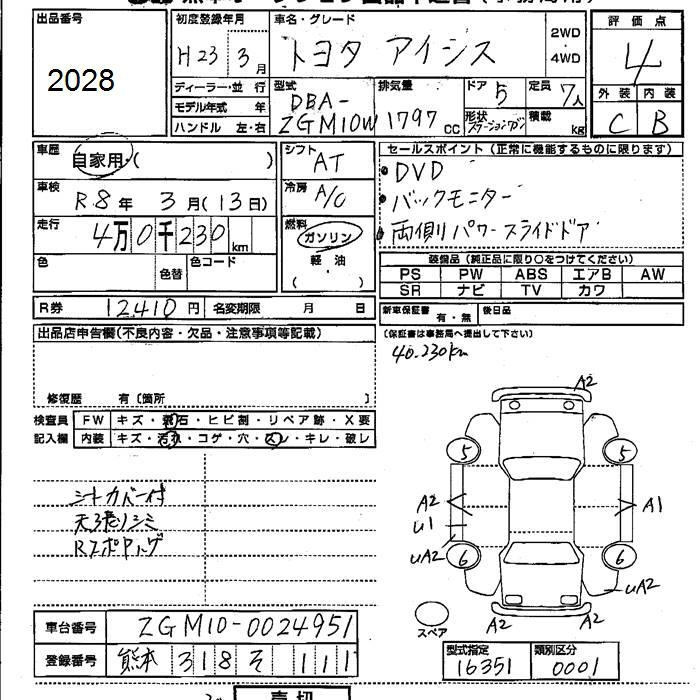 出品番号
2028
初度登録年月
H23 3月
車名・グレード
トヨタ アイシス
2WD
・
4WD
評価点
4
外装 内装
C B
ディーラー・並行
モデル年式 年
ハンドル 左・右
型式
DBA-
ZGM10W
排気量
1797 cc
ドア 5
形状 ステーションワゴン
定員 7人
積載 kg
車歴
自家用・( )
車検
R8年 3月(13日)
走行
4万0千230km
色
色替
色コード
シフト
AT
冷房
A/C
燃料
ガソリン
軽・油
( )
セールスポイント(正常に機能するものに限ります)
DVD
バックモニター
両側パワースライドドア
装備品(純正品に限り○をつけてください)
PS PW ABS エアB AW
SR ナビ TV カワ
R券 12410円 名変期限 月 日
新車保証書 有・無 後日品
(保証書は事務局へ提出して下さい)
出品店申告欄(不良内容・欠品・注意事項等記載)
40.230km
修復歴 有〔箇所 〕
検査員 FW キズ・飛石・ヒビ割・リペア跡・X要
記入欄 内装 キズ・汚れ・コゲ・穴・スレ・キレ・破レ
シートカバー付
天張りシミ
A2
5 5
A2
U1
A1
UA2
6 6
UA2
A2 A2
スペア
車台番号 ZGM10-0024951
登録番号 熊本 318 そ 111
型式指定
16351
類別区分
0001